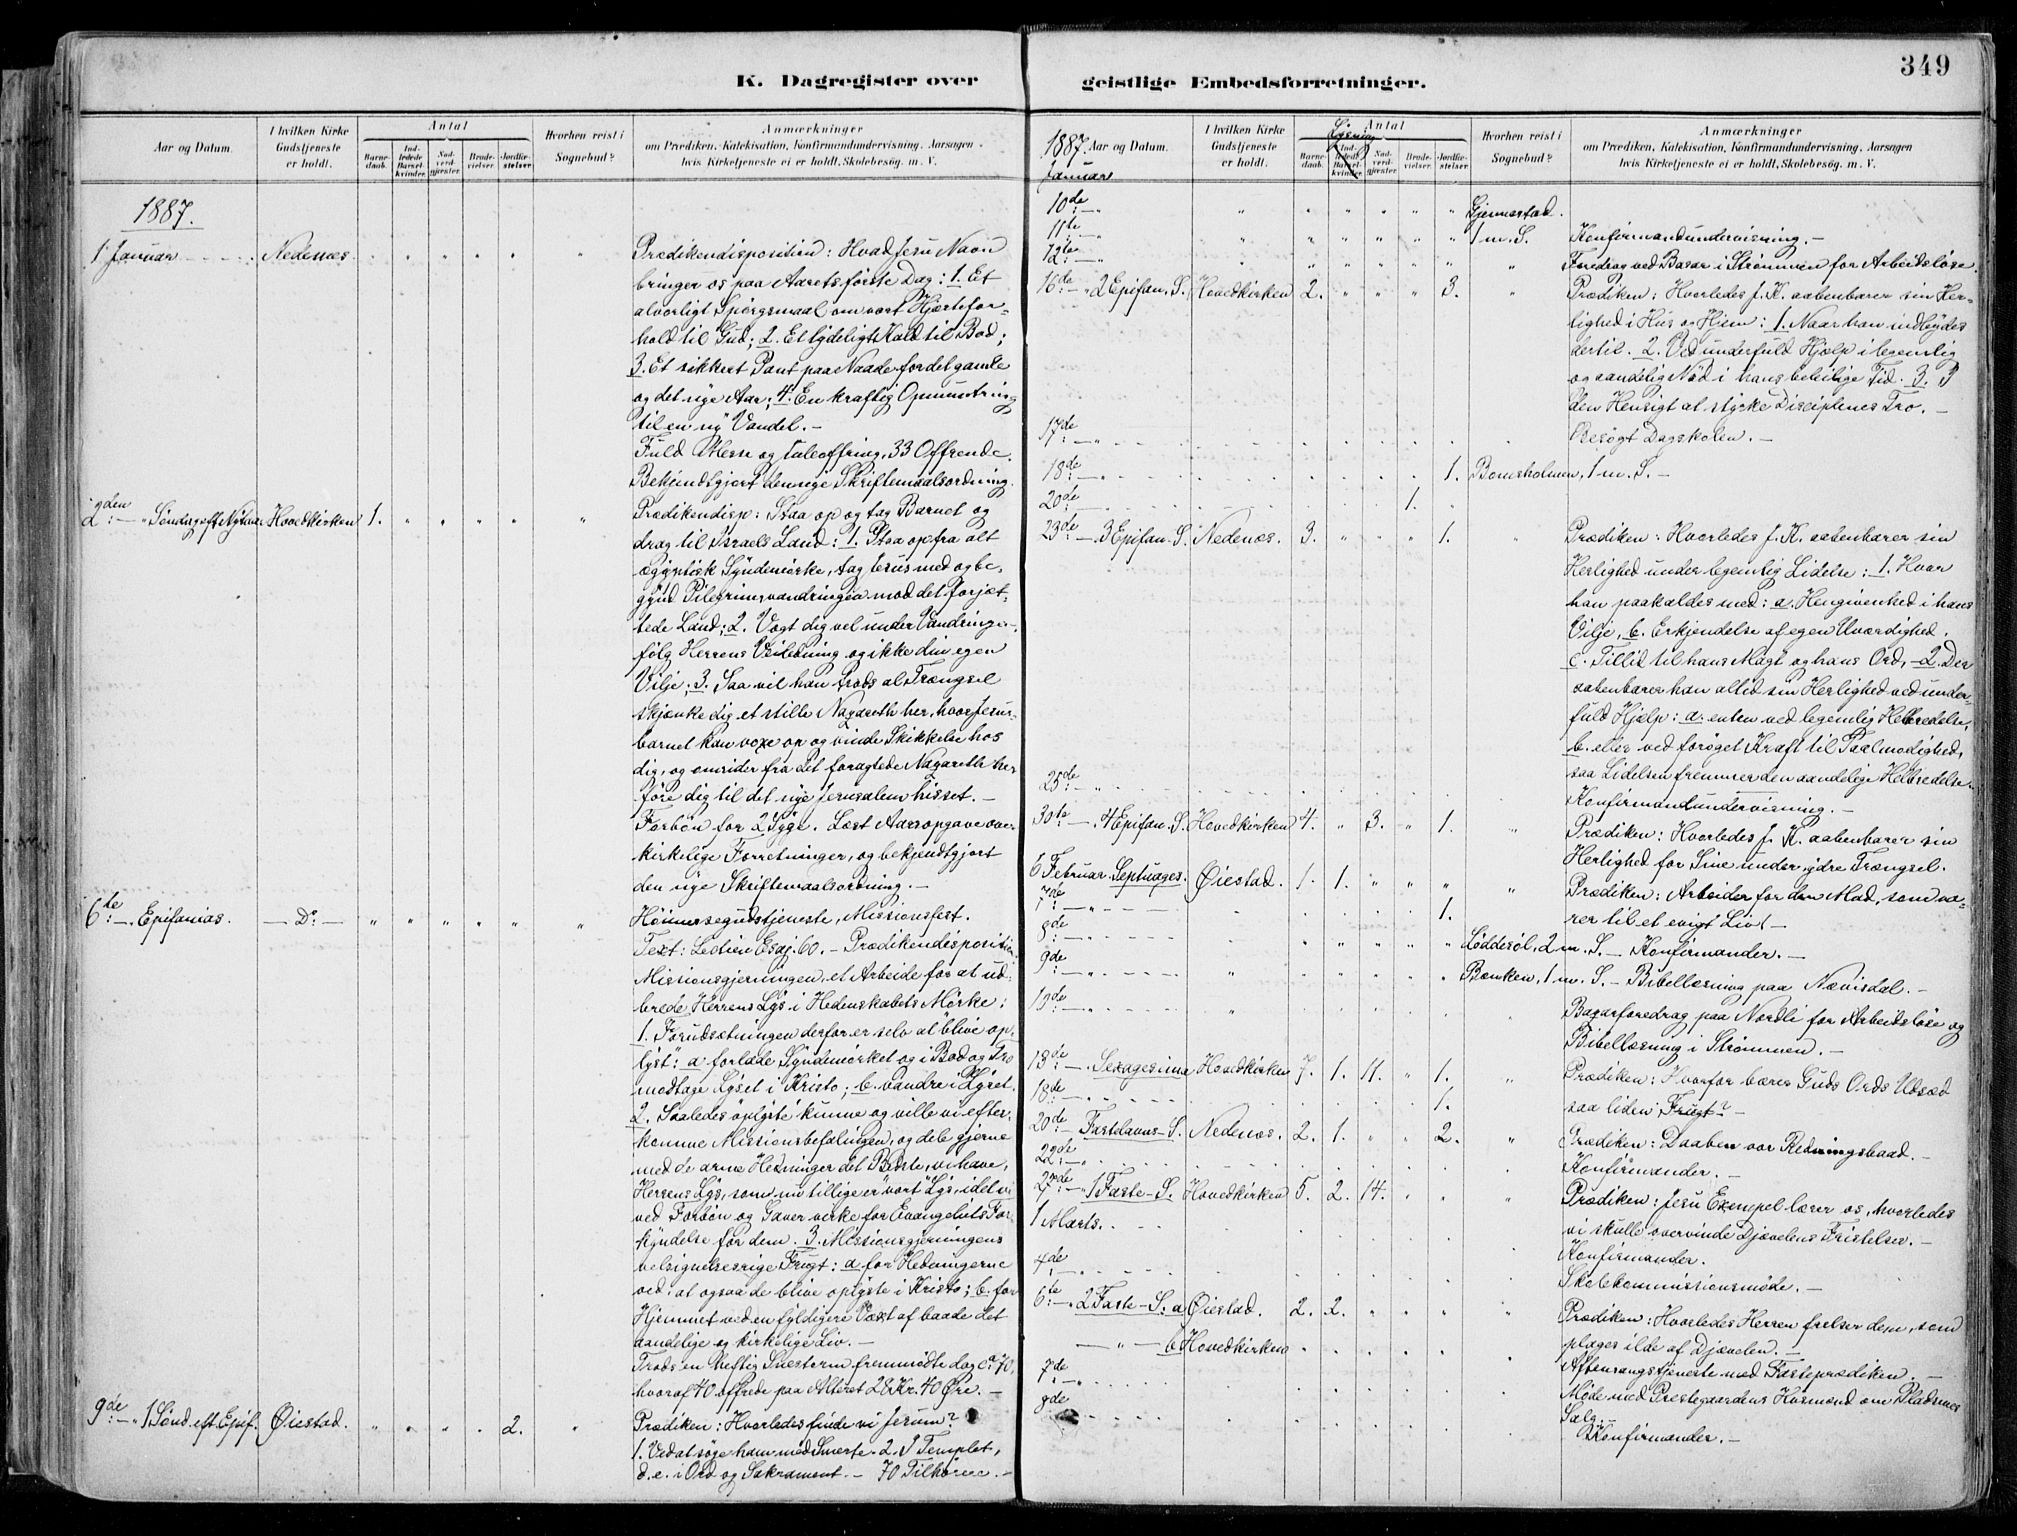 349
K. Dagregister over geistlige Embedsforretninger.
Aar og Datum.
I hvilken Kirke Gudstjeneste er holdt.
Antal
Barnedaab.
Indledede Barselkvinder.
Nadverdgjæster.
Brudevielser.
Jordfæstelser.
Hvorhen reist i Sognebud?
Anmærkninger
om Prædiken, Katekisation, Konfirmandundervisning, Aarsagen
hvis Kirketjeneste ei er holdt, Skolebesøg, m. V.
1887.
1 Januar Nedenæs. Prædikendisposition: Hvad Jesu Navn
bringer os paa Aarets første Dag: 1. Et
alvorligt Spørgsmaal om vort Hjertefor-
hold til Gud; 2. Et tydeligt Kald til Bod;
3. Et sikkert Pant paa Naade for det gamle
og det nye Aar; 4. En kraftig Opmuntring
til en ny Vandel. –
Fuld Messe og taleoffring, 33 Offrende.
Bekjendtgjort den nye Skriftemaalsordning.
2den Søndag eft. Nytaar Hovedkirken 1. Prædikendisp: Staa op og tag Barnet og
drag til Israels Land: 1. Staa op fra alt
ægyptisk Syndemørke, tag Jesus med og be-
gynd Pilegrimsvandringen mod det forjæt-
tede Land; 2. Vogt dig vel under Vandringen,
følg Herrens Veiledning og ikke din egen
Vilje; 3. Saa vil han trods al Trængsel
skjænke dig et stille Nazareth her, hvor Jesus-
barnet kan voxe op og vinde Skikkelse hos
dig, og omsider fra det foragtede Nazareth her
føre dig til det nye Jerusalem hisset. –
Forbøn for 2 Syge. Læst Aarsopgave over
kirkelige Forretninger, og bekjendtgjort
den nye Skriftemaalsordning. –
6te Epifanias. Do Høimessegudstjeneste, Missionsfest.
Text: Lectien Esaj. 60. – Prædikendisposition:
Missionsgjerningen, et Arbeide for at ud-
brede Herrens Lys i Hedenskabets Mørke:
1. Forudsætningen derfor er selv at "blive op-
lyst": a forlade Syndemørket og i Bod og Tro
modtage Lyset i Kristo; b. vandre i Lyset.
2. Saaledes "oplyste" kunne og ville vi efter-
komme Missionsbefalingen, og dele gjerne
med de arme Hedninger det Bedste, vi have,
Herrens Lys, som nu tillige er "vort" Lys, idet vi
ved Forbøn og Gaver virke for Evangeliets For-
kyndelse for dem. 3. Missionsgjerningens
velsignelsesrige Frugt: a for Hedningerne
ved: at ogsaa de blive oplyste i Kristo; b. for
Hjemmet ved en fyldigere Væxt af baade det
aandelige og kirkelige Liv. –
Trods en heftig Snestorm fremmødte dog ca 70,
hvoraf 40 offrede paa Alteret 28 Kr. 40 Øre. –
9de 1 Sønd. eft. Epif. Øiestad. 2. Prædiken: Hvorledes finde vi Jesum?
1. Ved at søge ham med Smerte. 2. I Templet,
d.e. i Ord og Sakrament. – 70 Tilhørere. –
1887. Aar og Datum.
I hvilken Kirke Gudstjeneste er holdt.
Antal
Barnedaab.
Indledede Barselkvinder.
Nadverdgjæster.
Brudevielser.
Jordfæstelser.
Hvorhen reist i Sognebud?
Anmærkninger
om Prædiken, Katekisation, Konfirmandundervisning, Aarsagen
hvis Kirketjeneste ei er holdt, Skolebesøg, m. V.
Januar
10de Gjennestad
11te 1 m. S. Konfirmandundervisning. –
12te Foredrag ved Bazar i Strømmen for Arbeidsløse.
16de 2 Epifan. S. Hovedkirken 2. 3. Prædiken: Hvorledes J. K. aabenbarer sin Her-
lighed i Hus og Hjem: 1. Naar han indbydes
dertil. 2. Ved underfuld Hjælp i legemlig
og aandelig Nød i hans beleilige Tid. 3. I
den Hensigt at styrke Disciplenes Tro. –
17de Besøgt Dagskolen. –
18de 1. Bomsholmen, 1 m. S. –
20de 1.
23de 3 Epifan. S. Nedenæs. 3. 1. Prædiken: Hvorledes J. K. aabenbarer sin
Herlighed under legemlig Lidelse: 1. Hvor
han paakaldes med: a. Hengivenhed i hans
Vilje, b. Erkjendelse af egen Uværdighed.
c. Tillid til hans Magt og hans Ord, – 2. Der
aabenbarer han altid sin Herlighed ved under-
fuld Hjælp: a. enten ved legemlig Helbredelse,
b. eller ved forøget Kraft til Taalmodighed,
saa Lidelsen fremmer den aandelige Helbredelse.
25de Konfirmandundervisning. –
30te 4 Epifan. S. Hovedkirken 4. 3. 1. Prædiken: Hvorledes J. K. aabenbarer sin
Herlighed for Sine under ydre Trængsel.
6 Februar Septuages. Øiestad. 1. 1. Prædiken: Arbeider for den Mad, som va-
7de 1. rer til et evigt Liv! –
8de Løddesøl, 2 m. S. – Konfirmander. –
9de Bomken, 1 m. S. – Bibellæsning paa Nævisdal. –
Bazarforedrag paa Nordli for Arbeidsløse og
Bibellæsning i Strømmen. –
13de Sexagesima Hovedkirken 7. 1. 11. 1. Prædiken: Hvorfor bærer Guds Ords Udsæd
18de 1. saa liden Frugt? –
20de Fastelavns-S. Nedenæs. 2. 1. 2. Prædiken: Daaben vor Redningsbaad. –
22de Konfirmander. –
27de 1 Faste-S. Hovedkirken 5. 2. 14. Prædiken: Jesu Exempel lærer os, hvorledes
vi skulle overvinde Djævelens Fristelser. –
1 Marts. Konfirmander.
4de Skolekommissionsmøde. –
6te 2 Faste-S. a Øiestad. 2. 2. Prædiken: Hvorledes Herren frelser dem, som
plages ilde af Djævelen. –
b Hovedkirken Aftensangstjeneste med Fasteprædiken. –
7de Møde med Prestegaardens Husmænd om Pladsenes
Salg. –
8de Konfirmander. –